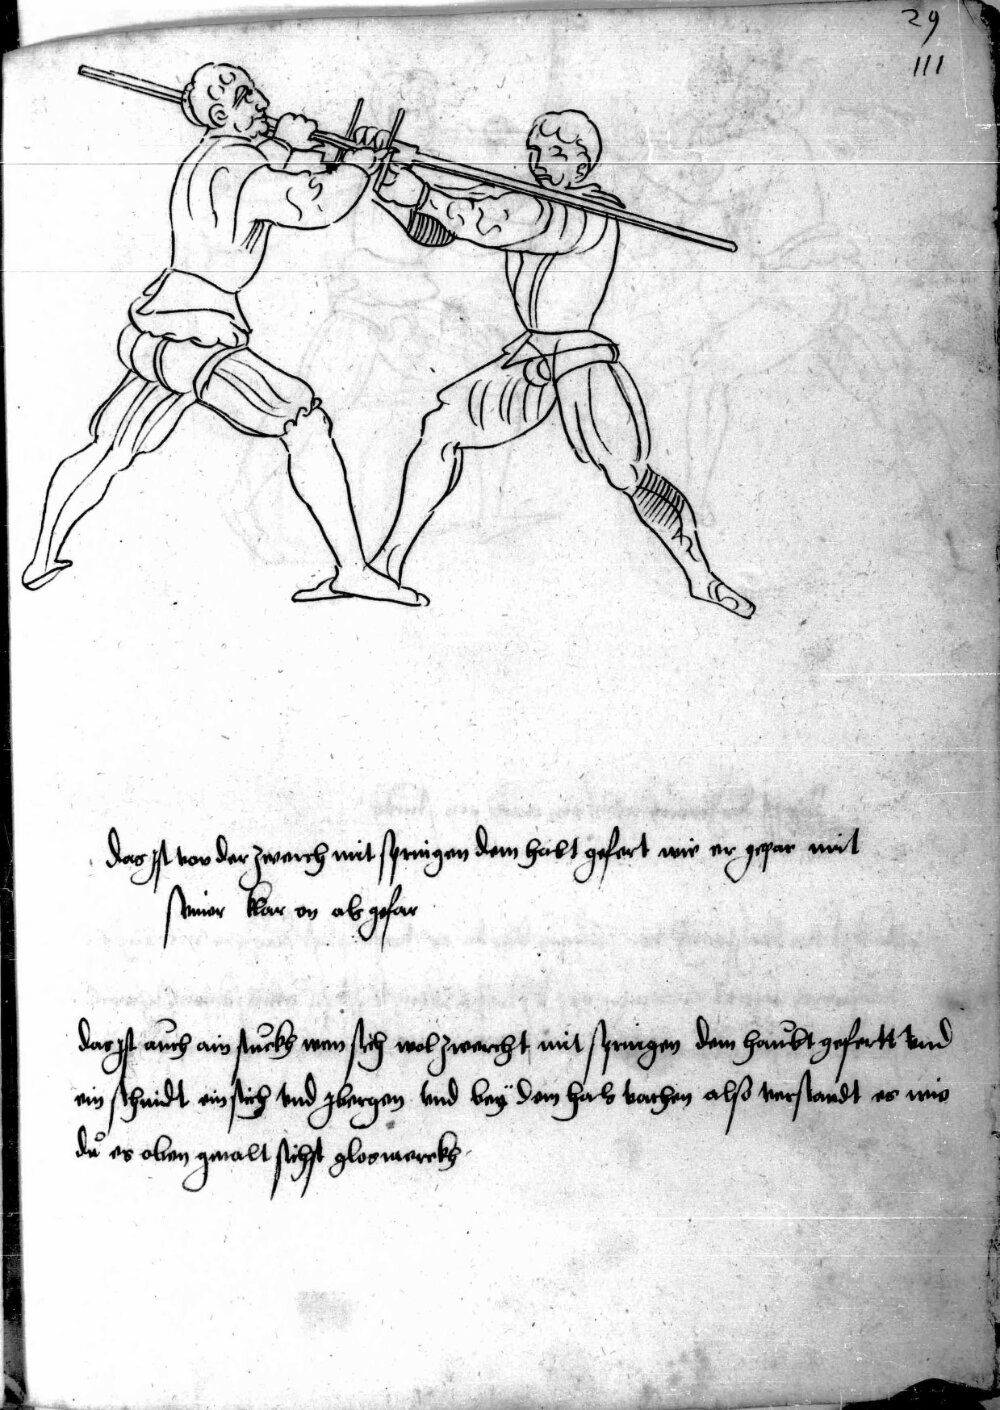 29
111
das jst von der zwerch mit springen dem habt gefert wie er gepar mit
seiner klar on als gefar
das jst auch ain stuckh wen sich wol zwercht mit springen dem haubt gefertt vnd
ein schnidt ein sich vnd vbergen vnd bey dem hals vachen also verstandt es wie
du es oben gmalt sichst glosmerckh